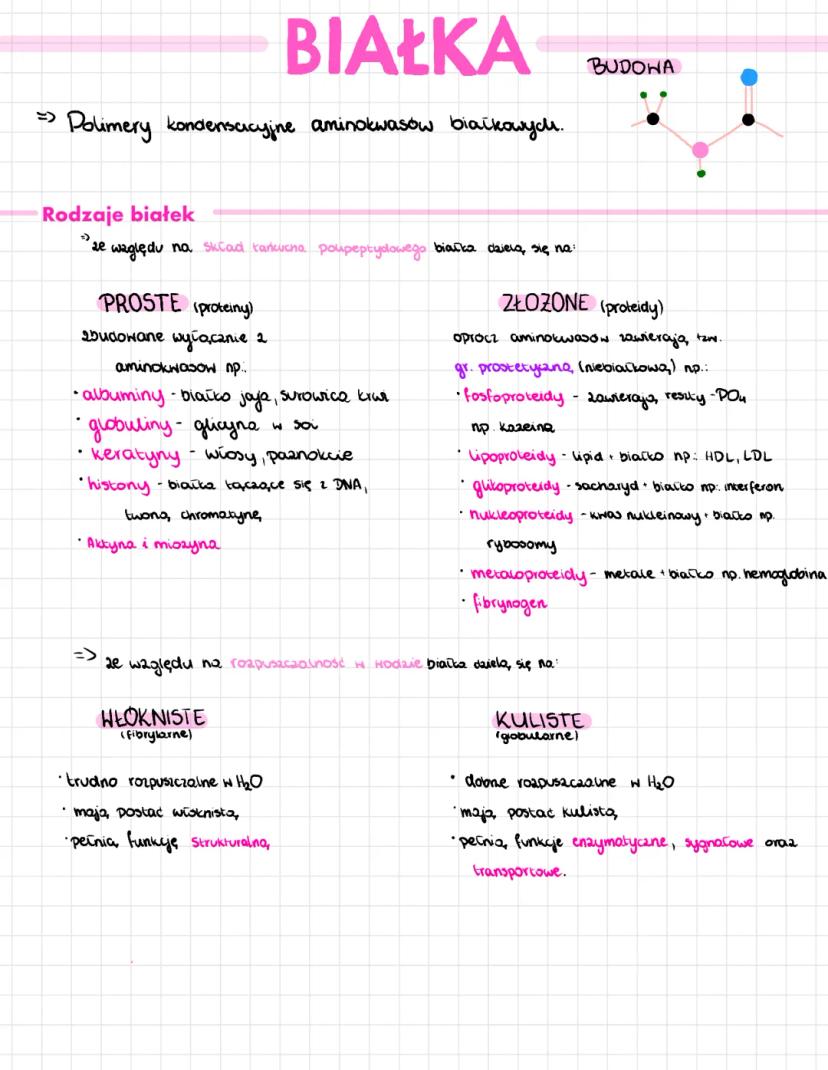 BIAŁKA
BUDOWA
=> Polimery kondensacyjne aminokwasów białkowych.
Rodzaje białek
=> ze względu na skład łańcucha polipeptydowego białka dzielą się na:
PROSTE (proteiny)
zbudowane wyłącznie z
aminokwasów np.:
· albuminy - białko jaja, surowica krwi
· globuliny - glicyna w soi
· keratyny - włosy, paznokcie
· histony - białka łączące się z DNA,
tworzą chromatynę
· Aktyna i miozyna
ZŁOŻONE (proteidy)
oprócz aminokwasów zawierają tzw.
gr. prostetyczną (niebiałkową) np.:
· fosfoproteidy - zawierają reszty -PO₄
np. kazeina
· lipoproteidy - lipid + białko np.: HDL, LDL
· glikoproteidy - sacharyd + białko np. interferon
· nukleoproteidy - kwas nukleinowy + białko np.
rybosomy
· metaloproteidy - metale + białko np. hemoglobina
· fibrynogen
=> ze względu na rozpuszczalność w wodzie białka dzielą się na:
WŁÓKNISTE
(fibrylarne)
· trudno rozpuszczalne w H₂O
· mają postać włóknistą
· pełnią funkcję strukturalną
KULISTE
(globularne)
· dobrze rozpuszczalne w H₂O
· mają postać kulistą
· pełnią funkcje enzymatyczne, sygnałowe oraz
transportowe.